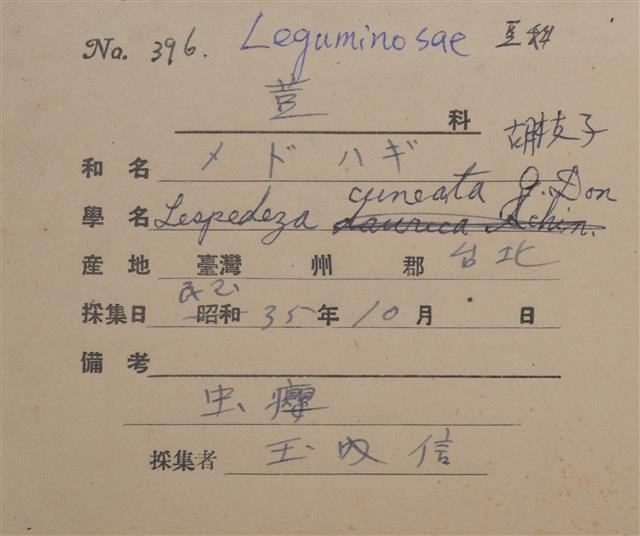 No. 396. Leguminosae 豆科
荳 科
胡枝子
和名 メドハギ
cuneata G. Don
學名 Lespedeza daurica Schin.
産地 臺灣 州 郡 台北
民國
採集日 昭和 35年 10月 日
備考
虫癭
採集者 王 信